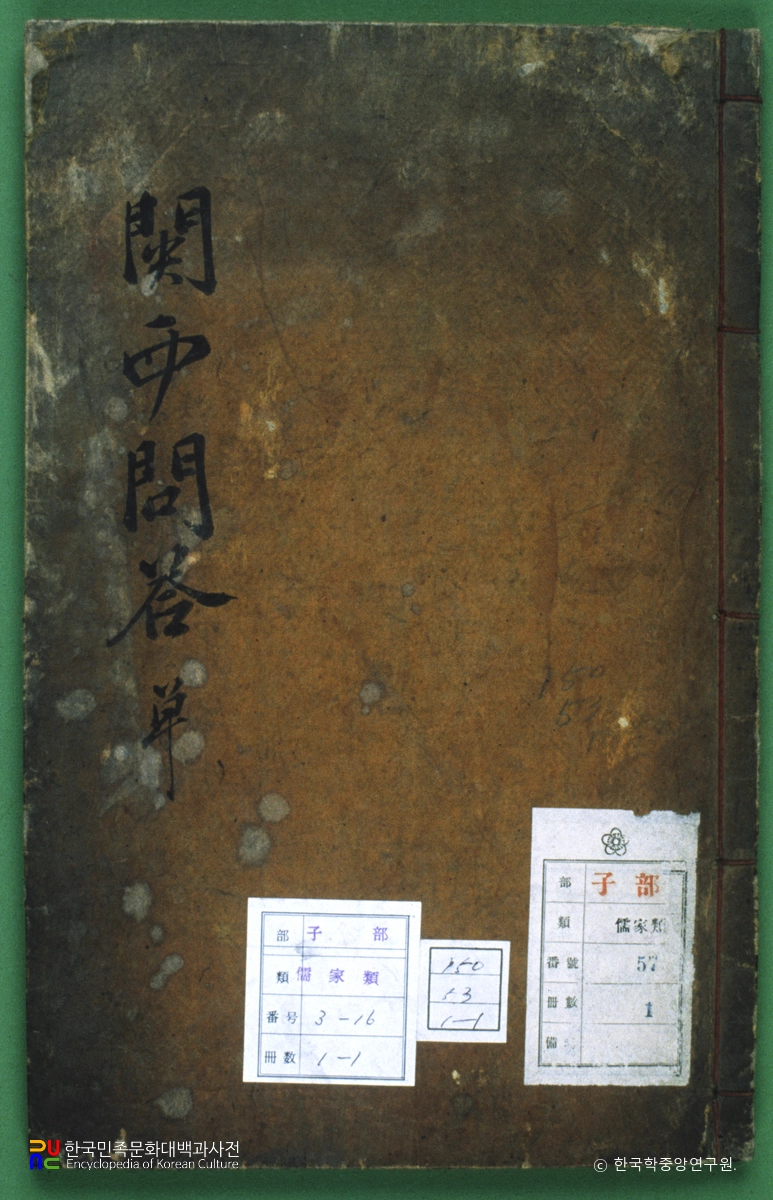 關西問答 單
部 子部
類 儒家類
番号 3-16
冊数 1-1
150
53
1-1
部 子部
類 儒家類
番號 57
冊數 1
備
한국민족문화대백과사전
Encyclopedia of Korean Culture
© 한국학중앙연구원.